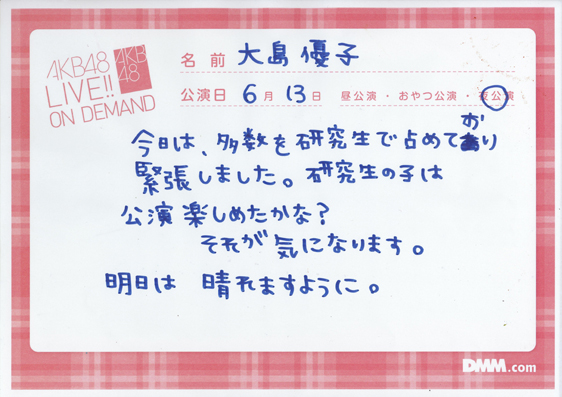 AKB48
LIVE!!
ON DEMAND
AKB
48
名前 大島優子
公演日 6月13日 昼公演・おやつ公演・夜公演
今日は、多数を研究生で占めており
緊張しました。研究生の子は
公演楽しめたかな?
それが気になります。
明日は 晴れますように。
DMM.com